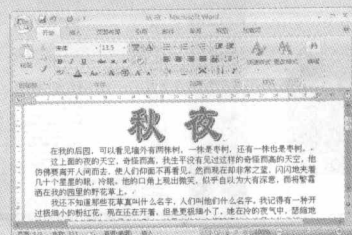 秋夜 - Microsoft Word
开始 插入 页面布局 引用 邮件 审阅 视图
宋体 13.5
秋 夜
在我的后园，可以看见墙外有两株树，一株是枣树，还有一株也是枣树。
这上面的夜的天空，奇怪而高，我生平没有见过这样的奇怪而高的天空，他
仿佛要离开人间而去，使人们仰面不再看见。然而现在却非常之蓝，闪闪地夹着
几十个星星的眼，冷眼。他的口角上现出微笑，似乎自以为大有深意，而将繁霜
洒在我的园里的野花草上。
我还不知道那些花草真叫什么名字，人们叫他们什么名字。我记得有一种开
过极细小的粉红花，现在还在开着，但是更极细小了，她在冷的夜气中，瑟缩地